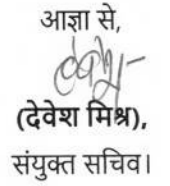 आज्ञा से,
(देवेश मिश्र),
संयुक्त सचिव।